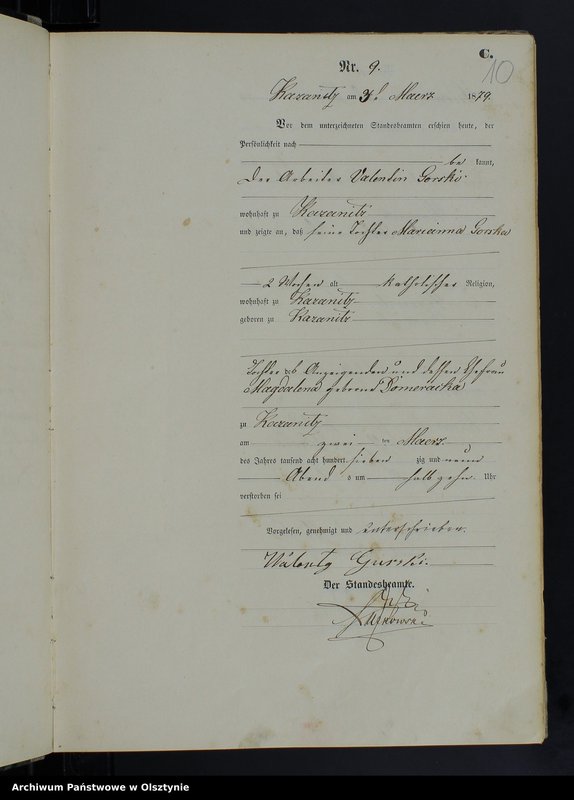 C.
10
Nr. 9.
Kazanitz am 3t Maerz 1879.
Vor dem unterzeichneten Standesbeamten erschien heute, der
Persönlichkeit nach
be kannt,
Der Arbeiter Valentin Gorski
wohnhaft zu Kazanitz
und zeigte an, daß seine Tochter Marianna Gorska
2 Wochen alt katholischer Religion,
wohnhaft zu Kazanitz
geboren zu Kazanitz
Tochter des Anzeigenden und dessen Ehefrau
Magdalena geborene Domeracka
zu Kazanitz
am zwei ten Maerz
des Jahres tausend acht hundert sieben zig und neun
Abend s um halb zehn Uhr
verstorben sei
Vorgelesen, genehmigt und unterschrieben.
Walenty Gurski.
Der Standesbeamte.
Archiwum Państwowe w Olsztynie